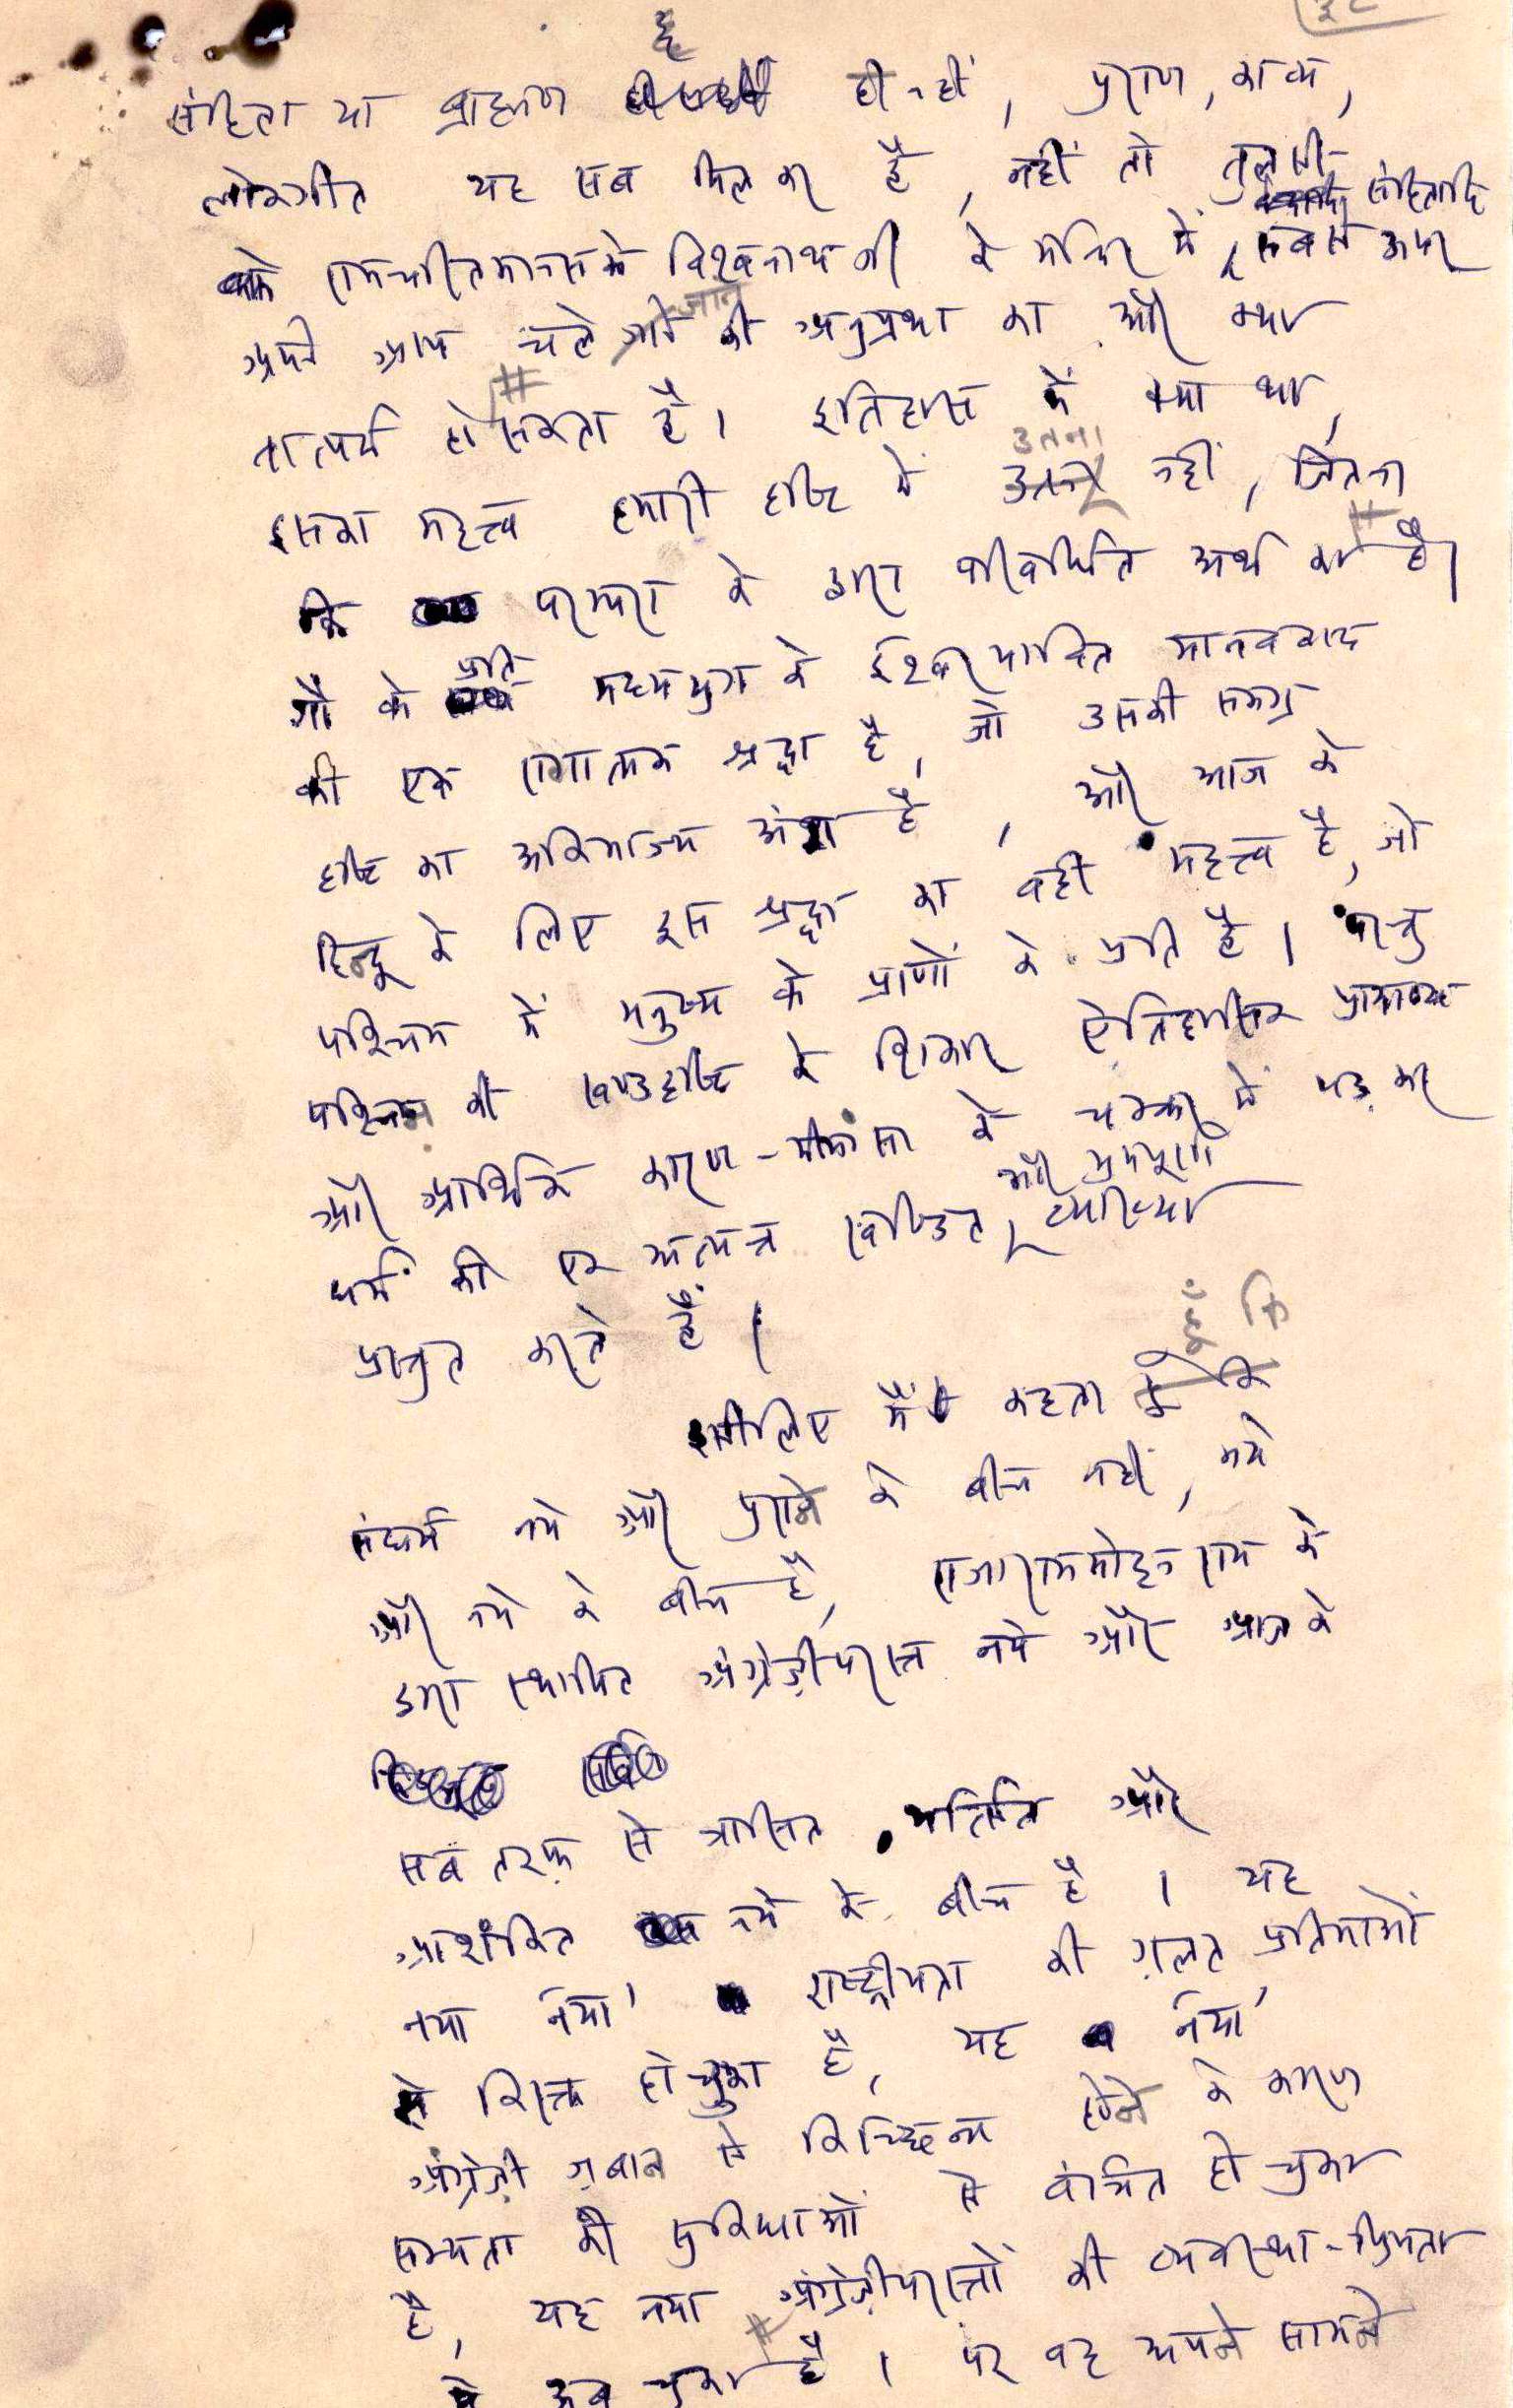 संहिता या ब्राह्मण ही नहीं, पुराण, काव्य,
लोकगीत यह सब मिलकर है, नहीं तो तुलसी
के रामचरितमानस के विश्वनाथ जी के मन्दिर में संहितादि सबसे ऊपर
अपने आप चले जाने की अनुप्रथा का और क्या
तात्पर्य हो सकता है। इतिहास में क्या था,
इसका महत्त्व हमारी दृष्टि में उतना नहीं, जितना
कि परम्परा के द्वारा परिवर्धित अर्थ का है।
गौ के प्रति मध्ययुग के ईश्वरभावित मानववाद
की एक रागात्मक श्रद्धा है, जो उसकी समग्र
दृष्टि का अविभाज्य अंश है, और आज के
हिन्दू के लिए इस श्रद्धा का वही महत्त्व है, जो
पश्चिम में मनुष्य के प्राणों के प्रति है। परन्तु
पश्चिम की खण्डदृष्टि के शिकार ऐतिहासिक प्रामाण्य
और आर्थिक कारण-मीमांसा के चक्कर में पड़ कर
धर्म की एक अत्यन्त खण्डित और भ्रमपूर्ण व्याख्या
प्रस्तुत करते हैं।
इसीलिए मैं कहता हूँ कि
संघर्ष नये और पुराने के बीच नहीं, नये
और नये के बीच है, राजा राममोहन राय के
द्वारा स्थापित अंग्रेज़ीपरस्त नये और आज के
सब तरफ़ से त्रासित और
आशंकित नये के बीच है। यह
नया 'नया' राष्ट्रीयता की ग़लत प्रतिमाओं
से रिक्त हो चुका है, यह 'नया'
अंग्रेज़ी ज़बान से विच्छिन्न होने के कारण
सभ्यता की सुविधाओं से वंचित हो चुका
है, यह नया अंग्रेज़ीपरस्तों की व्यवस्था-प्रियता
से ऊब चुका है। पर वह अपने सामने